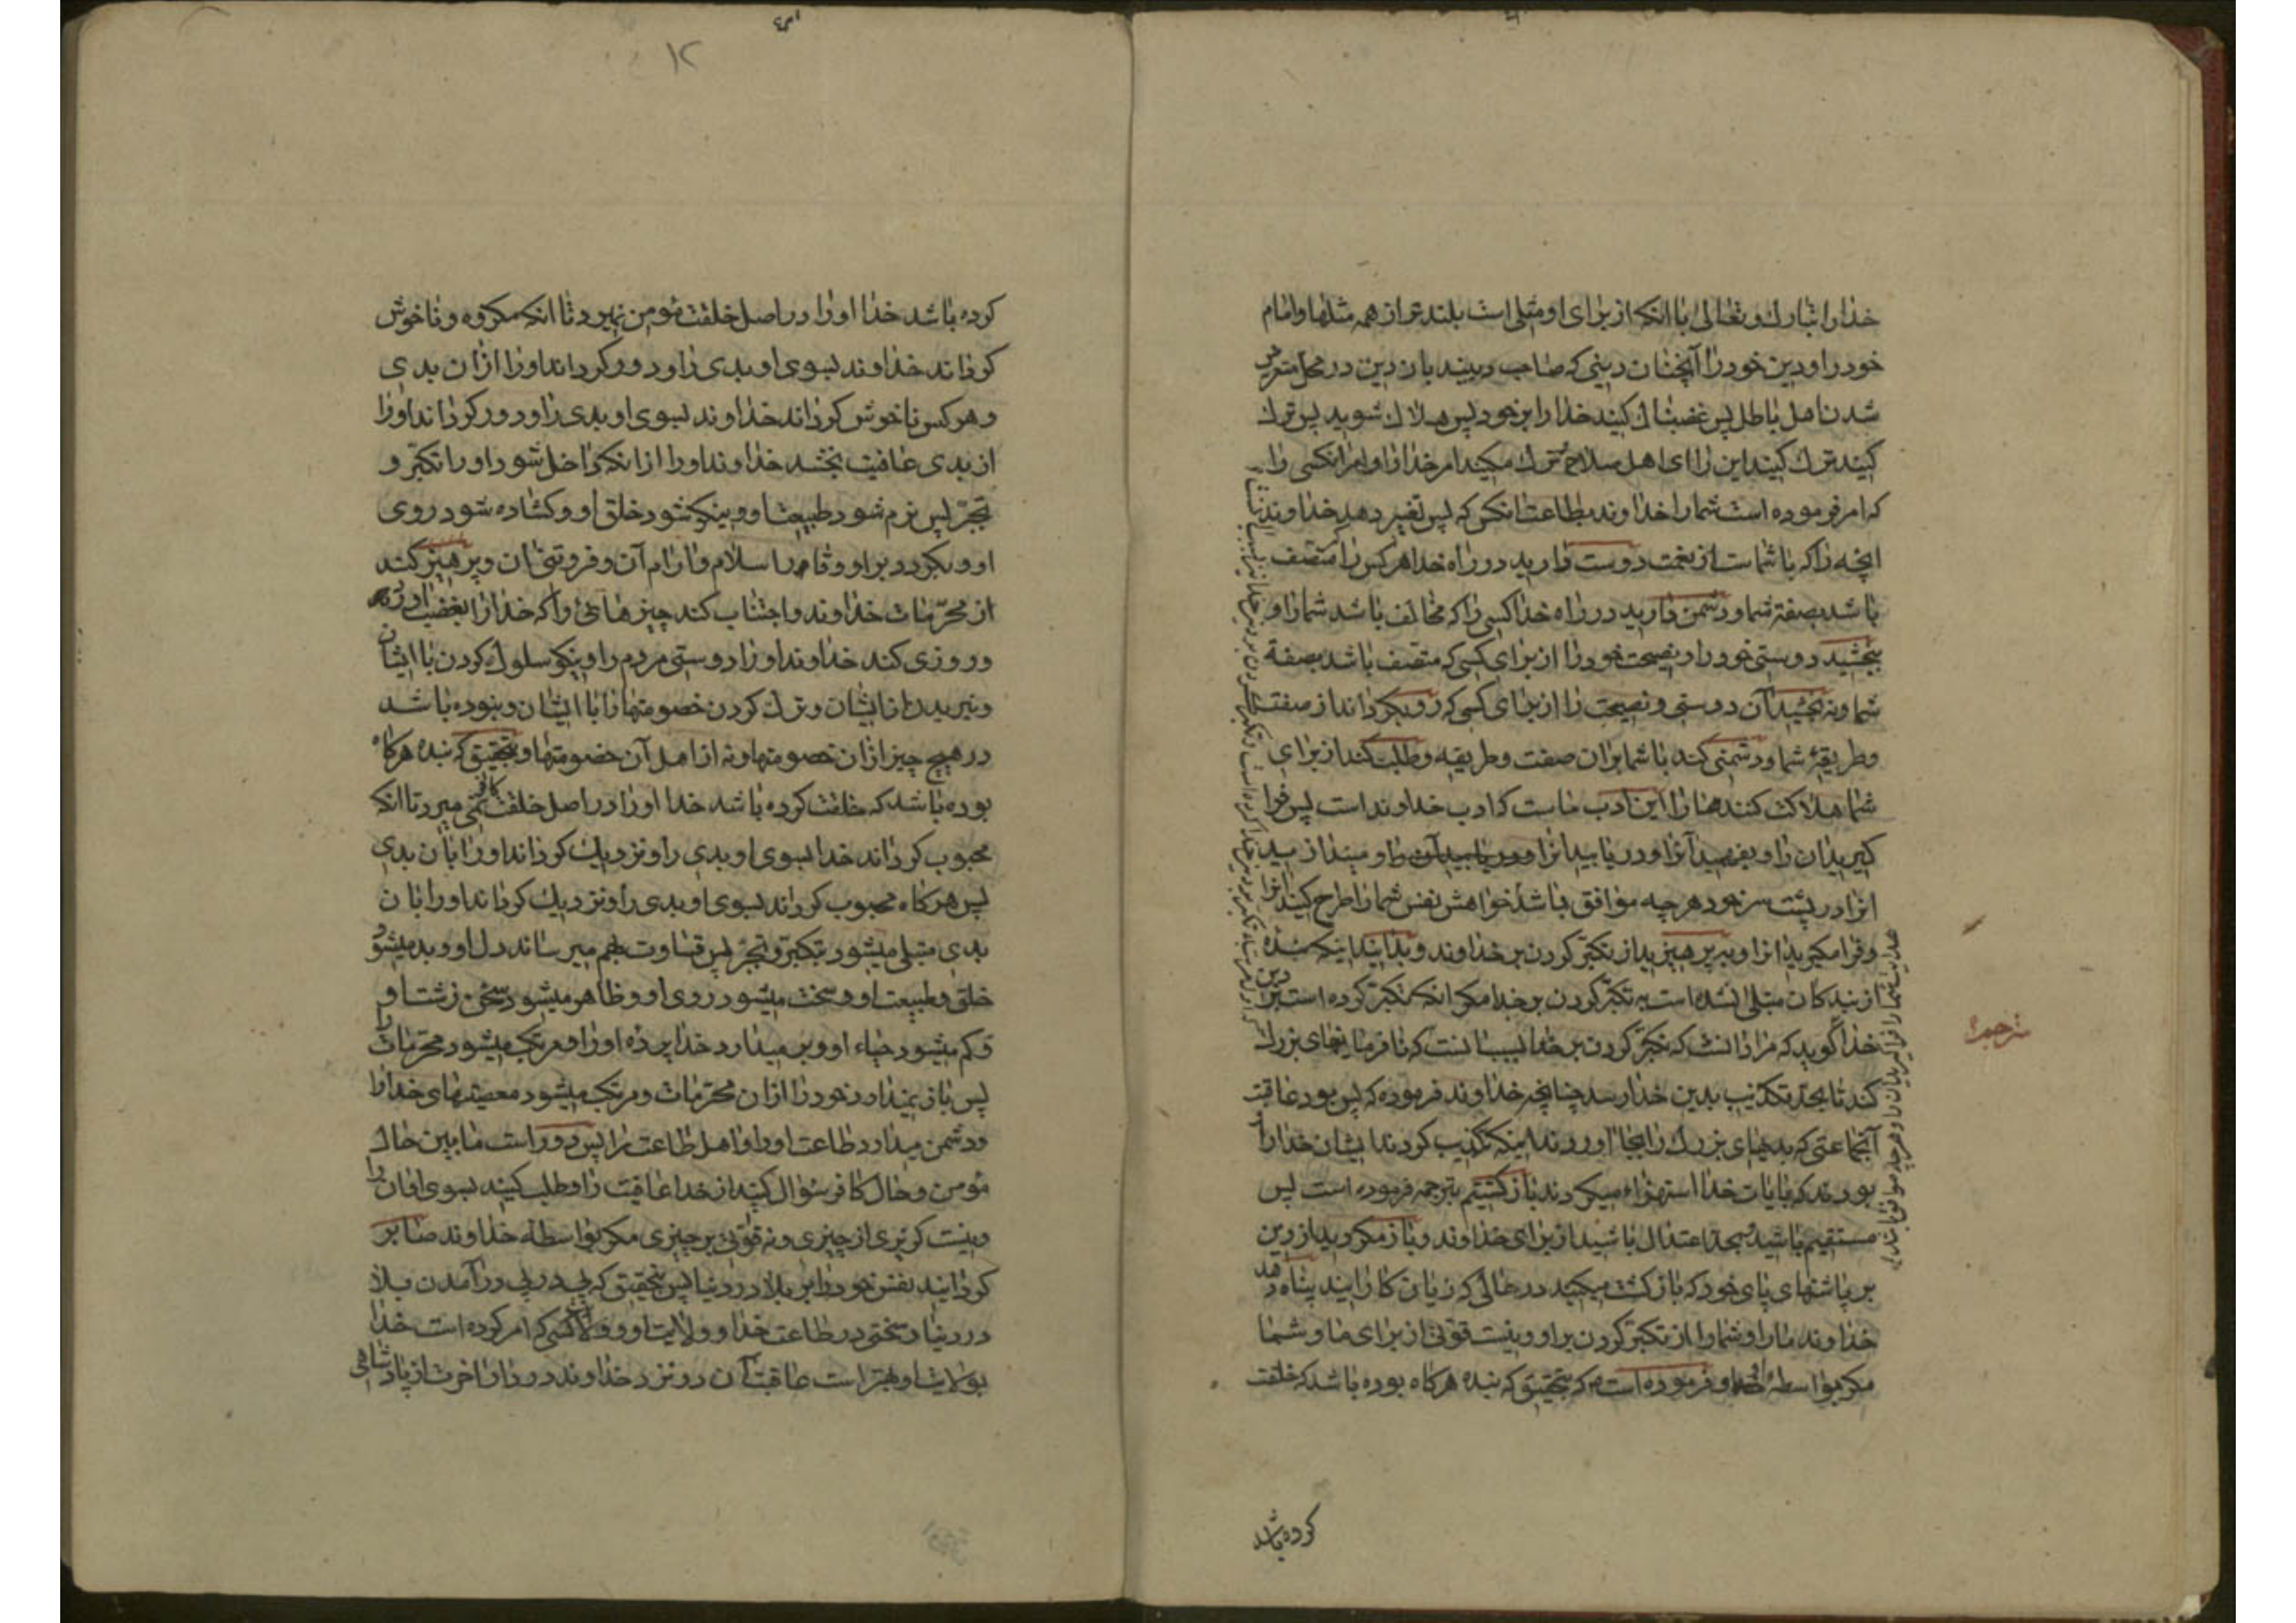 خدا را تبارک و تعالی با آنکه از برای او مثلی است بلندتر از همه مثلها و امام
خود را و دین خود را آنچنان دینی که صاحب دینید بان دین در محل متعرض
شدن اهل باطل پس غضبناک کنید خدا را بر خود پس هلاک شوید پس ترک
کنید ترک کنید این را ای اهل سلاح ترک مکنید امر خدا را و امر آنکسی را
که امر فرموده است شما را خداوند بطاعت انکس که پس تغییر دهد خداوند
آنچه را که با شماست از نعمت دوست دارید در راه خدا هر کس را متصف
باشد بصفة شما و دشمن دارید در راه خدا کسی را که مخالف باشد شما را و
ببخشید دوستی خود را و نصیحت خود را از برای کسی که متصف باشد بصفة
شما و نه بخشید آن دوستی و نصیحت را از برای کسی که رو بگرداند از صفت
وطریقهٔ شما و دشمنی کند با شما بران صفت و طریقه و طلب کند از برای
شما هلاکت کنندها را این ادب ماست که ادب خداوند است پس فرا
کیرید ان را و بفهمید آنرا و دریابید انرا و دریابید آن را و میندازید
انرا در پشت سر خود هر چه موافق باشد خواهش نفس شما را طرح کنید انرا
و فرا مکیرید انرا و بپرهیزید از تکبّر کردن بر خداوند و بدانید اینکه بندهٔ
از بندکان مبتلی نشده است به تکبّر کردن بر خدا مکر انکه تکبّر کرده است بر دین
خدا گوید که مراد انست که تکبّر کردن بر خدا سبب انست که نافرمانیهای بزرک
کند تا بحد تکذیب بدین خدا رسد چنانچه خداوند فرموده که پس بود عاقبت
آنجماعتی که بدیهای بزرک را بجا اوردند اینکه تکذیب کردند ایشان خدا را
بودند که بایات خدا استهزاء میکردند باز کشتیم بترجمه فرموده است پس
مستقیم باشید و بحد اعتدال باشید از برای خداوند و باز مکردید از دین
بر پاشنهای پای خود که بازکشت میکنید در حالی که زیان کارانید پناه دهد
خداوند ما را و شما را از تکبّر کردن بر او و نیست قوتی از برای ما و شما
مکر بواسطهٔ خدا و فرموده است که بتحقیق که بنده هرکاه بوده باشد که خلقت
ترجمه
کرده باشد
۱۲
کرده باشد خدا او را در اصل خلقت مؤمن نمیرد تا انکه مکروه و ناخوش
کرداند خداوند بسوی او بدی را و دور کرداند او را از ان بدی
و هر کس ناخوش کرداند خداوند بسوی او بدی را و دور کرداند او را
از بدی عافیت بخشد خداوند او را از انکه داخل شود او را تکبّر و
تجبّر پس نرم شود طبیعت او و نیکو شود خلق او و کشاده شود روی
او و بکردد بر او وقار اسلام و ارام آن و فروتنی ان و پرهیز کند
از محرّمات خداوند و اجتناب کند چیزهائی را که خدا را بغضب اورد
و روزی کند خداوند او را دوستی مردم را و نیکو سلوک کردن با ایشان
و نبریدن از ایشان و ترک کردن خصومتها را با ایشان و نبوده باشد
در هیچ چیز از ان خصومتها و نه از اهل آن خصومتها و بتحقیق که بنده هرکاه
بوده باشد که خلقت کرده باشد خدا او را در اصل خلقت کافر نمی میرد تا انکه
محبوب کرداند خدا بسوی او بدی را و نزدیک کرداند او را بان بدی
پس هرکاه محبوب کرداند بسوی او بدی را و نزدیک کرداند او را بان
بدی مبتلی میشود بتکبّر و تجبّر پس قساوت بهم میرساند دل او و بد میشود
خلق و طبیعت او و سخت میشود روی او و ظاهر میشود سخن زشت او
و کم میشود حیاء او و بر میدارد خدا پرده او را و مرتکب میشود محرّمات را
پس باز نمیدارد خود را از ان محرّمات و مرتکب میشود معصیتهای خدا را
و دشمن میدارد طاعت او را و اهل طاعت را پس دور است ما بین حال
مؤمن و حال کافر سؤال کنید از خدا عافیت را و طلب کنید بسوی او ان را
و نیست کزیری از چیزی و نه قوتی بر چیزی مکر بواسطه خداوند صابر
کردانید نفس خود را بر بلا در دنیا پس بتحقیق که پی در پی در آمدن بلا
در دنیا و سختی در طاعت خدا و ولایت او و ولایت کسی که امر کرده است خدا
بولایت او بهتر است عاقبت آن در نزد خداوند در دار اخرت از پادشاهی